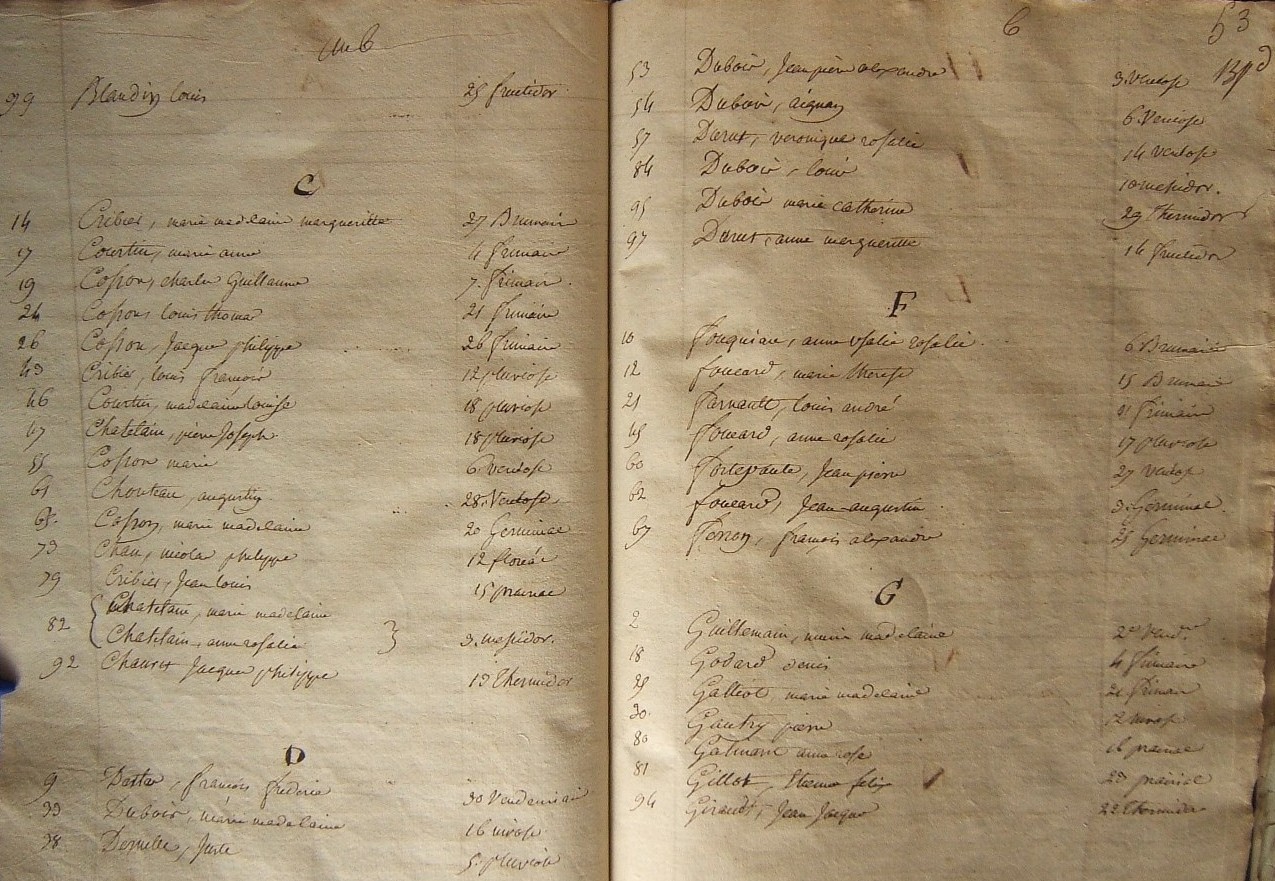 99 Blandin louis 25 fructidor
C
14 Cribier, marie madelaine margueritte 27 Brumair
17 Courtin, marie anne 4 frimair
19 Cosson, charle Guillaume 7. frimair.
24 Cosson, louis thomas 21 frimaire
26 Cosson, Jacque philippe 26 frimaire
43 Cribier, louis francois 12 pluviose
46 Courtin, madelaine louise 18 pluviose
47 Chatelain, pierre Joseph 18 pluviose
55 Cosson marie 6 ventose
61 Chouteau, augustin 28. Ventose
65. Cosson, marie madelaine 20 Germinal
73 Chau, nicolas philippe 12 floreal
79 Cribier, Jean louis 15 prairial
Chatelain, marie madelaine
82 Chatelain, anne rosalie 3. messidor.
92 Jacque philippe 13 thermidor
D
9 francois frederic 30 Vendemiair
33 Dubois, marie madelaine 16 nivose
38 Juste 5. pluviose
6 53
53 Dubois, Jean pierre alexandre 3. ventose
54 Dubois, aignan 6. Ventose
57 Darut, veronique rosalie 14 ventose
84 Dubois, louis 10 messidor.
95 Dubois marie catherine 29 thermidor
97 Darut, anne margueritte 14 fructidor
F
10 anne rosalie 6 Brumaire
12 foucard, marie therese 15 Brumair
21 farnault, louis andré frimair
45 foucard, anne rosalie 17 pluviose
60 Jean pierre 27 ventose
62 foucard, Jean augustin 3. Germinal.
67 francois alexandre 25 Germinal
G
2 Guillemain, marie madelaine 2e Vendre
18 Godard denis 4 frimaire
29 Galliot marie madelaine frimair
30. Gautry pierre 12 nivose
80 anne rose 16 prairial
81 Gillot, Etienne felix 23 prairial
94 Jean Jacque 22 thermidor